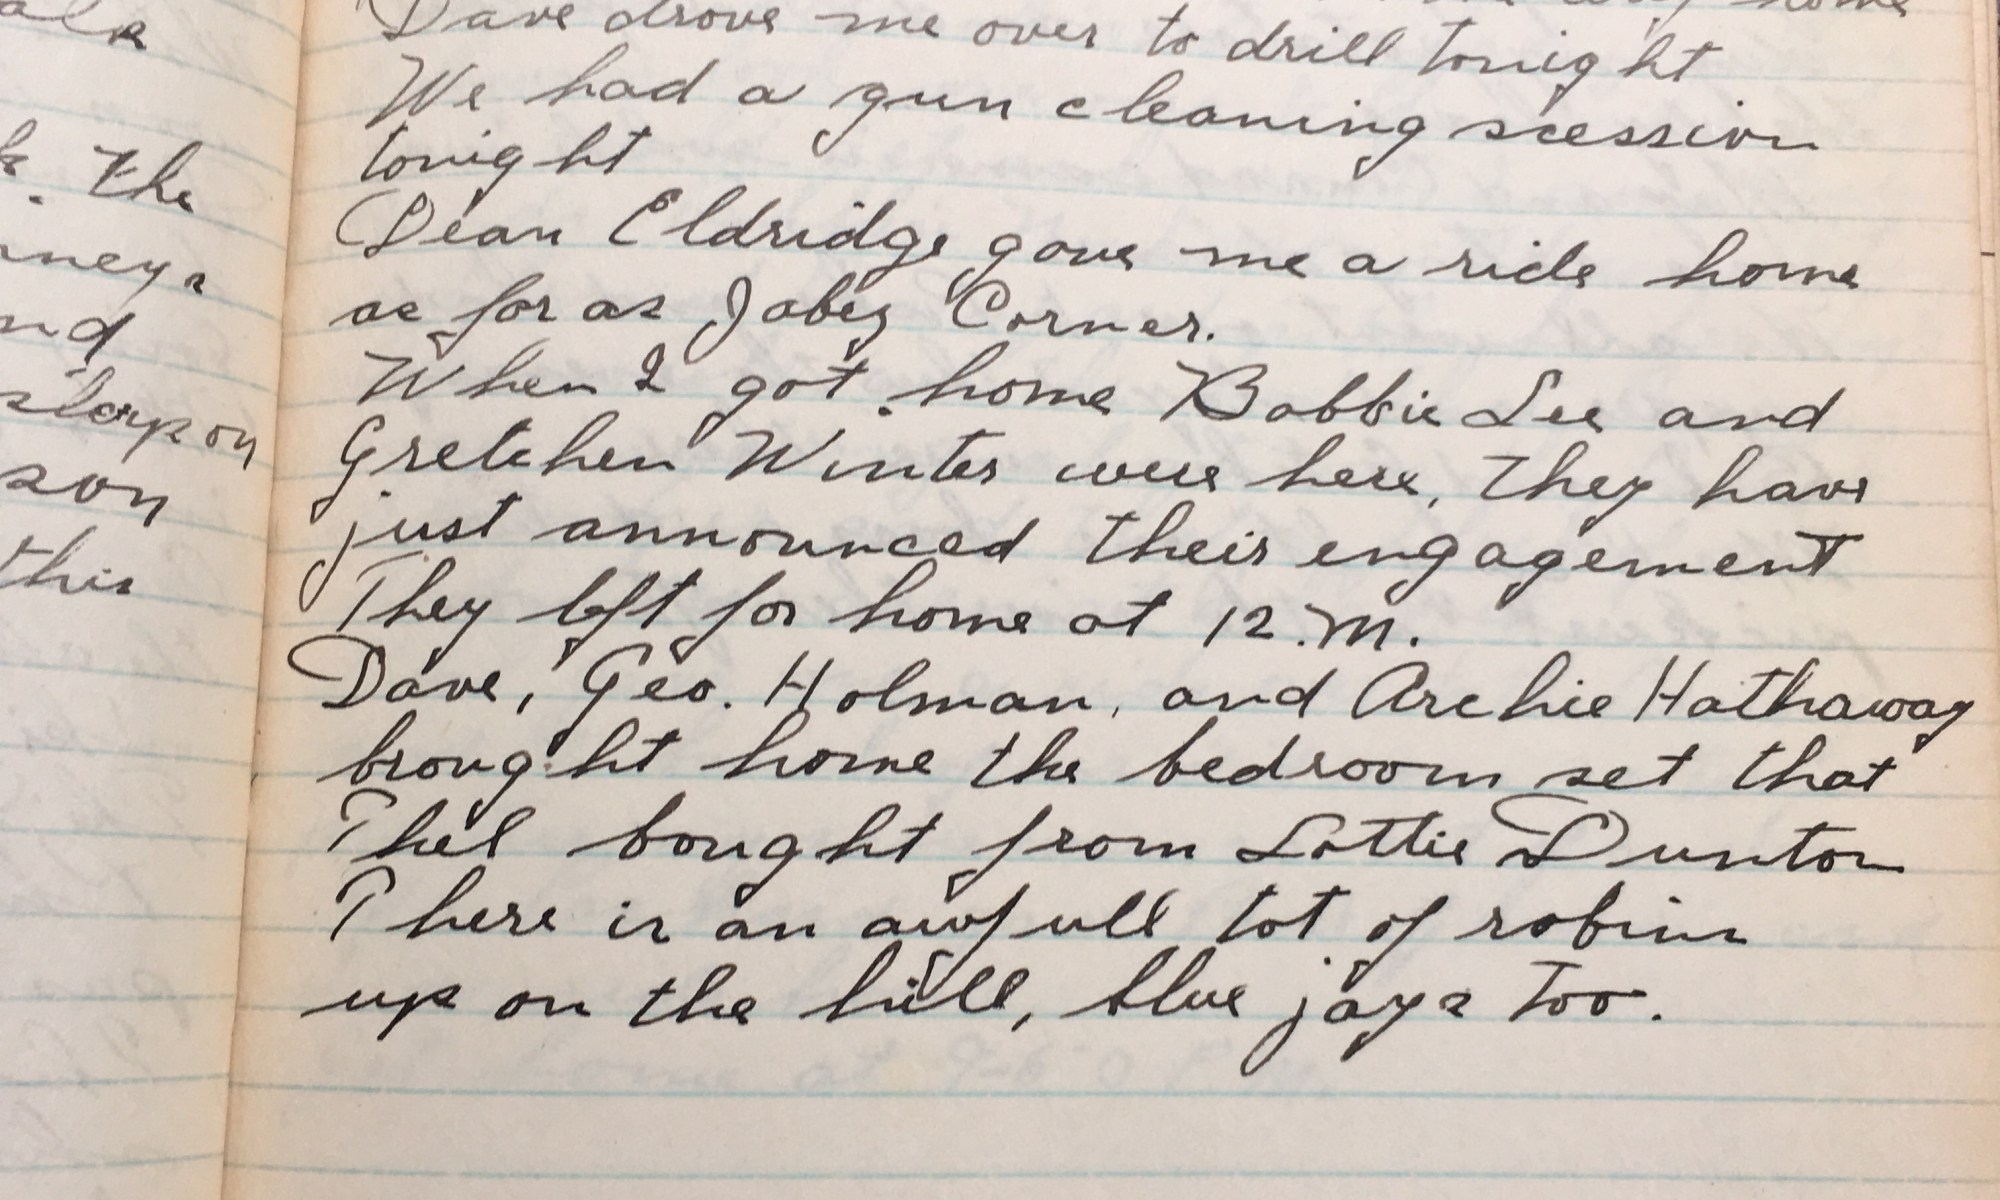 ale
k. the
ney.
nd
sleep on
son
this
way home
Dave drove me over to drill tonight
We had a gun cleaning scession
tonight
Dean Eldridge gave me a ride home
as far as Jabez Corner.
When I got home Bobbie Lee and
Gretchen Winter were here, they have
just announced their engagement
They left for home at 12.M.
Dave, Geo. Holman, and Archie Hathaway
brought home the bedroom set that
Thel bought from Lottie Dunton
There is an awfull lot of robins
up on the hill, blue jays too.